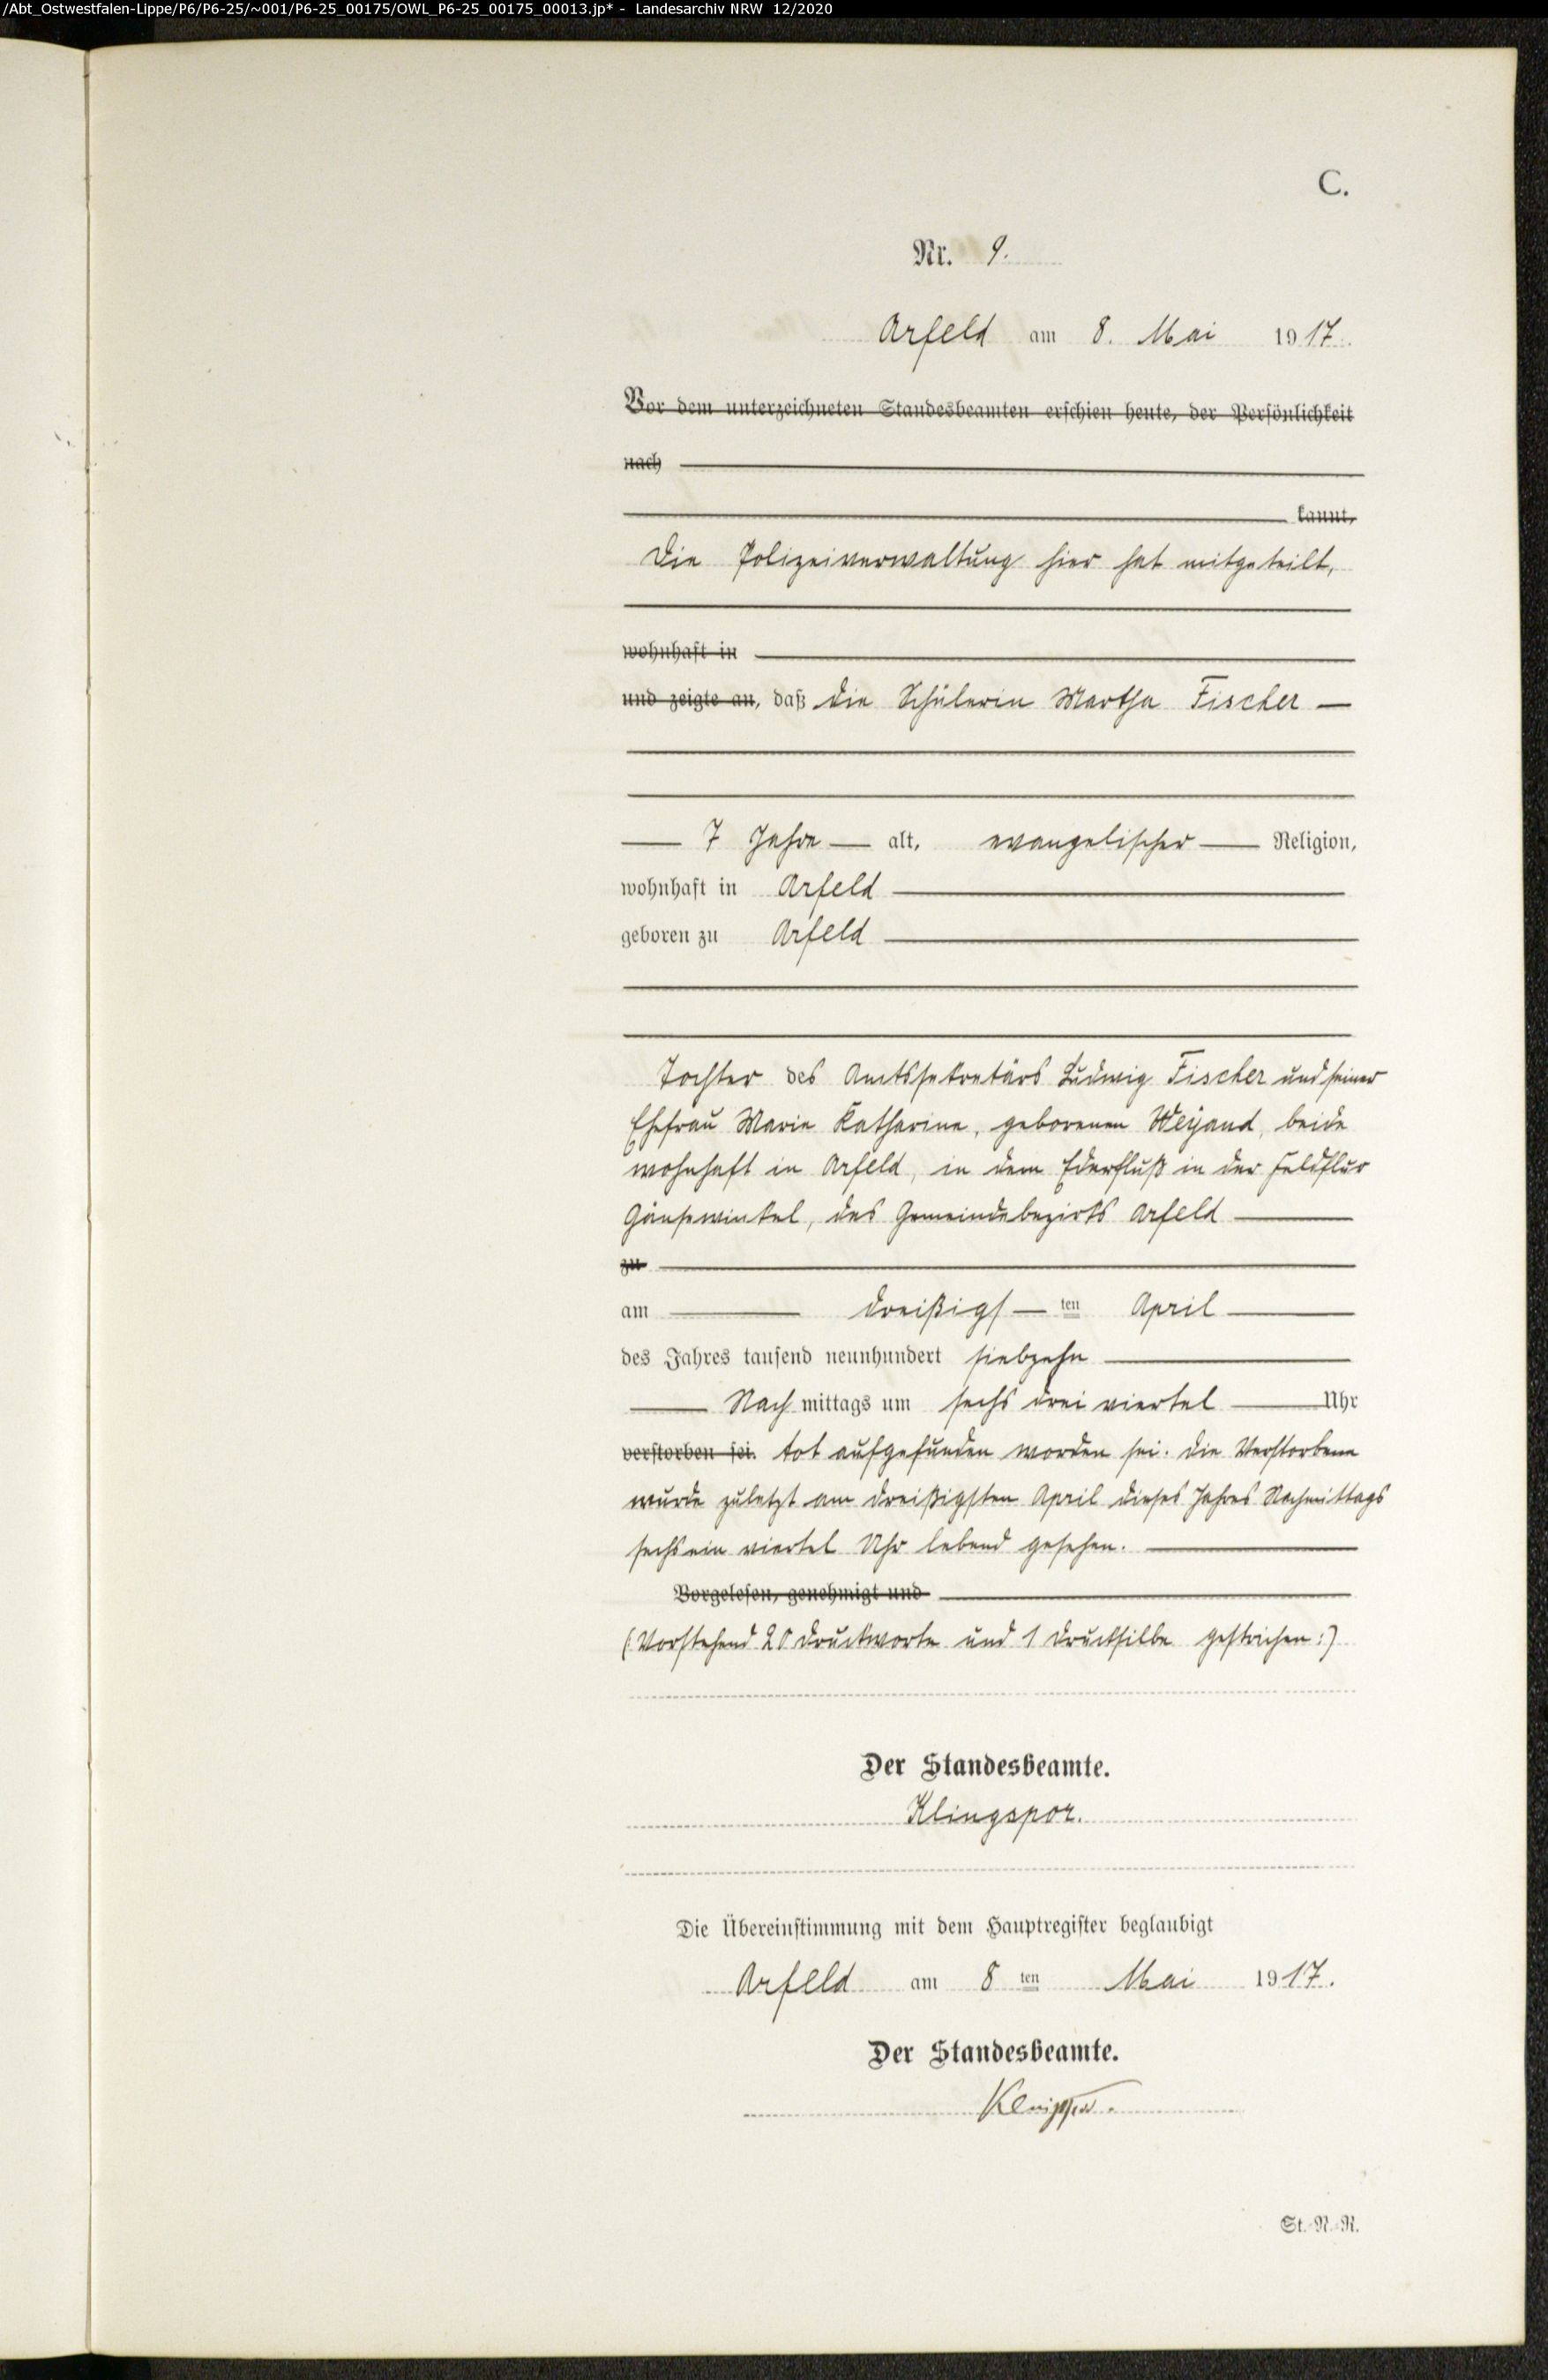 /Abt_Ostwestfalen-Lippe/P6/P6-25/~001/P6-25_00175/OWL_P6-25_00175_00013.jp* - Landesarchiv NRW 12/2020
C.
Nr. 9.
Arfeld am 8. Mai 1917.
Vor dem unterzeichneten Standesbeamten erschien heute, der Persönlichkeit
nach
kannt,
Die Polizeiverwaltung hier hat mitgeteilt,
wohnhaft in
und zeigte an, daß die Schülerin Martha Fischer —
— 7 Jahre — alt, evangelischer — Religion,
wohnhaft in Arfeld —
geboren zu Arfeld —
Tochter des Amtssekretärs Ludwig Fischer und seiner
Ehefrau Marie Katharine, geborenen Weyand, beide
wohnhaft in Arfeld, in dem Ederfluß in der Feldflur
Gänsewinkel, des Gemeindebezirks Arfeld —
zu —
am — dreißigs — ten April —
des Jahres tausend neunhundert siebzehn —
— Nach mittags um sechs drei viertel — Uhr
verstorben sei. tot aufgefunden worden sei. Die Verstorbene
wurde zuletzt am dreißigsten April dieses Jahres Nachmittags
sechs ein viertel Uhr lebend gesehen. —
Vorgelesen, genehmigt und —
(: Vorstehend 20 Druckworte und 1 Drucksilbe gestrichen :)
Der Standesbeamte.
Klingspor.
Die Übereinstimmung mit dem Hauptregister beglaubigt
Arfeld am 8 ten Mai 1917.
Der Standesbeamte.
Klingspor.
St. N. R.